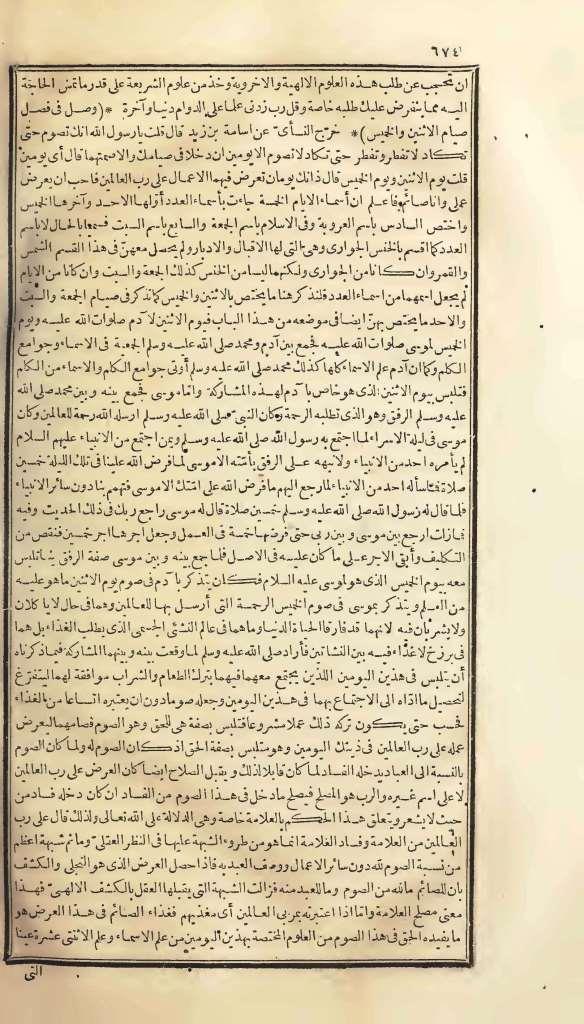 ٦٧٤
ان تحجب عن طلب هذه العلوم الالهية والاخروية وخذ من علوم الشريعة على قدر ما تمس الحاجة
اليه مما يتفرض عليك طلبه خاصة وقل رب زدنى علما على الدوام دنيا وآخرة * (وصل فى فصل
صيام الاثنين والخميس) * خرّج النسأى عن اسامة بن زيد قال قلت يا رسول الله انك تصوم حتى
تكاد لا تفطر وتفطر حتى تكاد لا تصوم الا يومين ان دخلا فى صيامك والا صمتهما قال أى يومين
قلت يوم الاثنين ويوم الخميس قال ذانك يومان تعرض فيهما الاعمال على رب العالمين فاحب ان يعرض
عملى وانا صائم فاعلم ان أسماء الايام الخمسة جاءت بأسماء العدد أولها الاحد وآخرها الخميس
واختص السادس باسم العروبة وفى الاسلام باسم الجمعة والسابع باسم السبت فسميا بالحال لا باسم
العدد كما اقسم بالخنس الجوارى وهى التى لها الاقبال والادبار ولم يجعل معهنّ فى هذا القسم الشمس
والقمر وان كانا من الجوارى ولكنهما ليسا من الخنس كذلك الجمعة والسبت وان كانا من الايام
لم يجعل اسمهما من اسماء العدد فلنذكر هنا ما يختص بالاثنين والخميس كما نذكر فى صيام الجمعة والسبت
والاحد ما يختص بهنّ ايضا فى موضعه من هذا الباب فيوم الاثنين لآدم صلوات الله عليه ويوم
الخميس لموسى صلوات الله عليه فجمع بين آدم ومحمد صلى الله عليه وسلم الجمعة فى الاسماء وجوامع
الكلم وكما ان آدم علم الاسماء كلها كذلك محمد صلى الله عليه وسلم أوتى جوامع الكلم والاسماء من الكلم
فتلبس بيوم الاثنين الذى هو خاص بآدم لهذه المشاركة واما موسى فجمع بينه وبين محمد صلى الله
عليه وسلم الرفق وهو الذى تطلبه الرحمة وكان النبى صلى الله عليه وسلم ارسله الله رحمة للعالمين وكان
موسى فى ليلة الاسراء لما اجتمع به رسول الله صلى الله عليه وسلم وبمن اجتمع من الانبياء عليهم السلام
لم يأمره احد من الانبياء ولا نبهه على الرفق بأمّته الا موسى لما فرض الله علينا فى تلك الليلة خمسين
صلاة فما سأله احد من الانبياء لما رجع اليهم ما فرض الله على امّتك الا موسى فتهمم بنا دون سائر الانبياء
فلما قال له رسول الله صلى الله عليه وسلم خمسين صلاة قال له موسى راجع ربك فى ذلك الحديث وفيه
فما زلت ارجع بين موسى وبين ربى حتى فرضها خمسة فى العمل وجعل اجرها اجر خمسين فنقص من
التكليف وأبقى الاجر على ما كان عليه فى الاصل فلما جمع بينه وبين موسى صفة الرفق بنا تلبس
معه بيوم الخميس الذى هو لموسى عليه السلام فكان يتذكر بآدم فى صوم يوم الاثنين ما هو عليه
من العلم ويتذكر بموسى فى صوم الخميس الرحمة التى أرسل بها للعالمين وهما فى حال لا يأكلان
ولا يشربان فيه لانهما قد فارقا الحياة الدنيا وما هما فى عالم النشئ الجسمى الذى يطلب الغذاء بل هما
فى برزخ لا غذاء فيه بين النشأتين فأراد صلى الله عليه وسلم لما وقعت بينه وبينهما المشاركة فيما ذكرناه
أن يتلبس فى هذين اليومين اللذين يجتمع معهما فيهما بترك الطعام والشراب موافقة لهما ليتفرّغ
لتحصيل ما اداه الى الاجتماع بهما فى هذين اليومين وجعله صوما دون ان يعتبره اتساعا من الغذاء
فحسب حتى يكون تركه ذلك عملا مشروعا فتلبس بصفة هى للحق وهو الصوم فصامهما ليعرض
عمله على رب العالمين فى ذينك اليومين وهو متلبس بصفة الحق اذ كان الصوم له ولما كان الصوم
بالنسبة الى العباد يدخله الفساد لما كان قابلا لذلك ويقبل الصلاح ايضا كان العرض على رب العالمين
لا على اسم غيره والرب هو المصلح فيصلح ما دخل فى هذا الصوم من الفساد ان كان دخله فساد من
حيث لا يشعر ويتعلق هذا الحكم بالعلامة خاصة وهى الدلالة على الله تعالى ولذلك قال على رب
العالمين من العلامة وفساد العلامة انما هو من طروء الشبهة عليها فى النظر العقلىّ وما ثم شبهة اعظم
من نسبة الصوم لله دون سائر الاعمال ووصف العبد به فاذا حصل العرض الذى هو التجلى والكشف
بان للصائم ما لله من الصوم وما للعبد منه فزالت الشبهة التى يقبلها العقل بالكشف الالهىّ فهذا
معنى مصلح العلامة واما اذا اعتبرته بمربى العالمين أى مغذيهم فغذاء الصائم فى هذا العرض هو
ما يفيده الحق فى هذا الصوم من العلوم المختصة بهذين اليومين من علم الاسماء وعلم الاثنتى عشرة عينا
التى